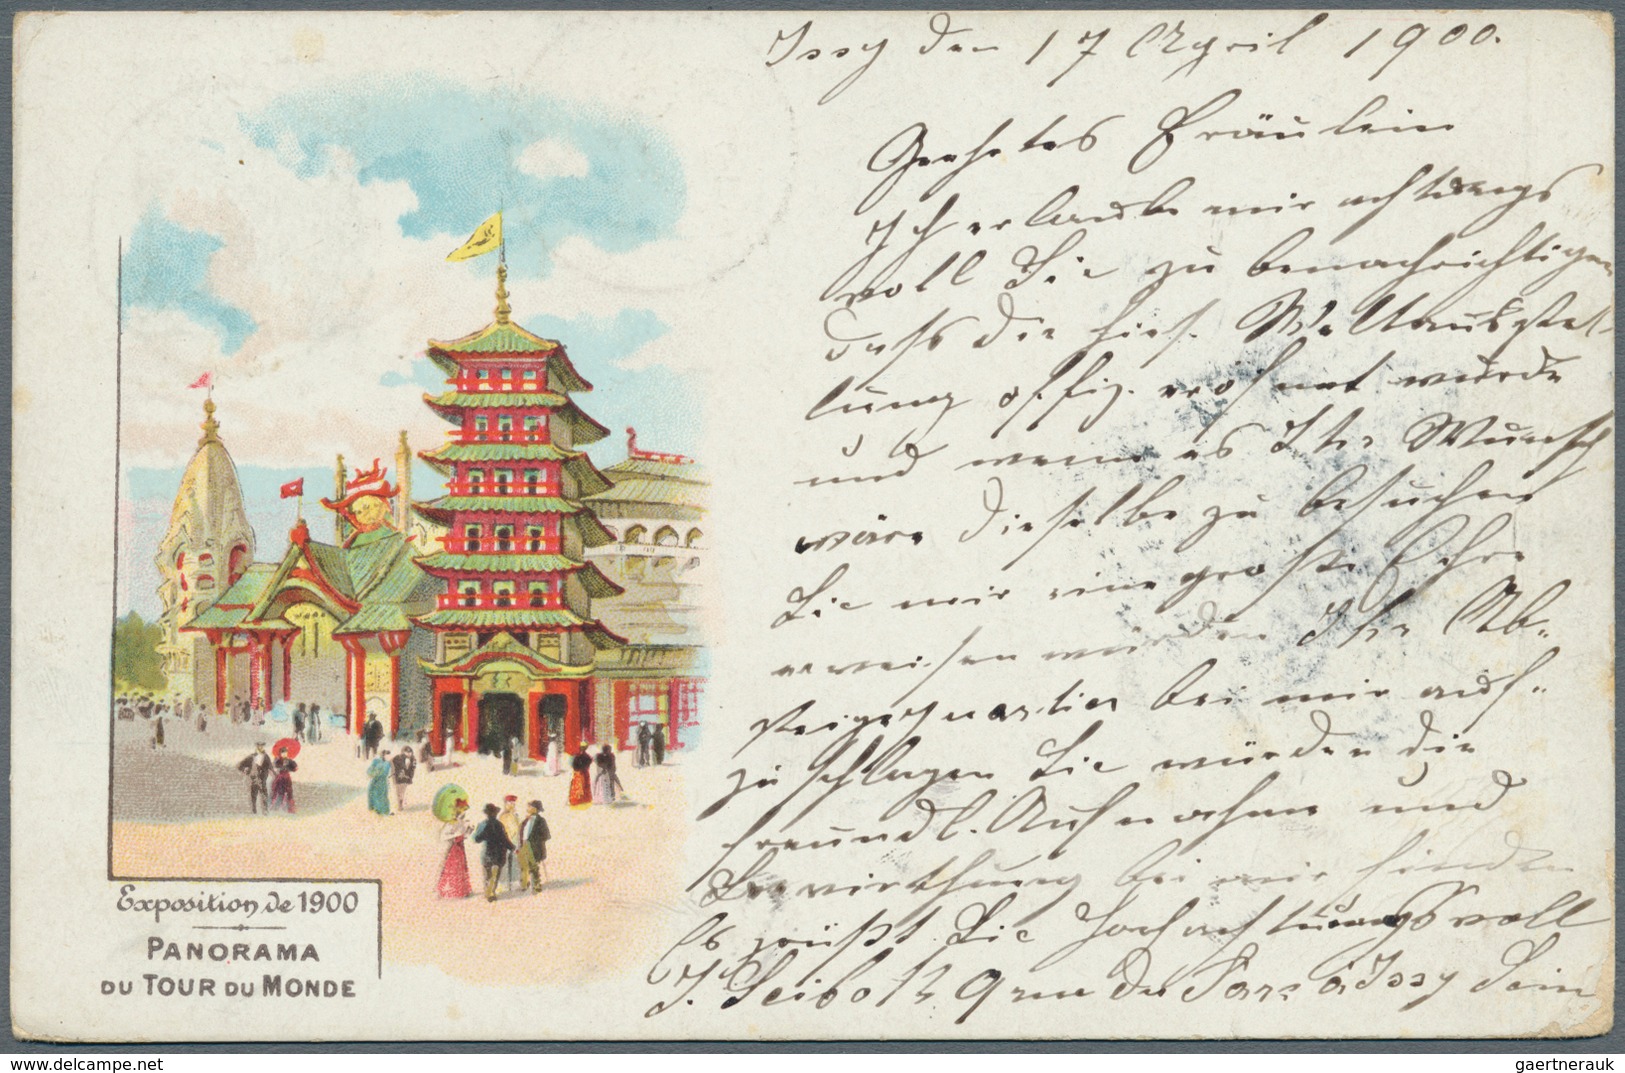 Issy den 17 April 1900.
Geehrtes Fräulein
Ich erlaube mir achtungs
voll Sie zu benachrichtigen
dass die hies. Weltausstel-
lung offiz. eröffnet wurde
und wenn es Ihr Wunsch
wäre dieselbe zu besuchen
Sie mir eine große Ehre
erweisen würden Ihr Ab-
steigequartier bei mir auf-
zu schlagen Sie würden die
freundl. Aufnahme und
Bewirthung bei mir finden
Es grüßt Sie Hochachtungsvoll
J. Seibold 9 rue du à Issy
Exposition de 1900
PANORAMA
DU TOUR DU MONDE
www.delcampe.net
gaertnerauk